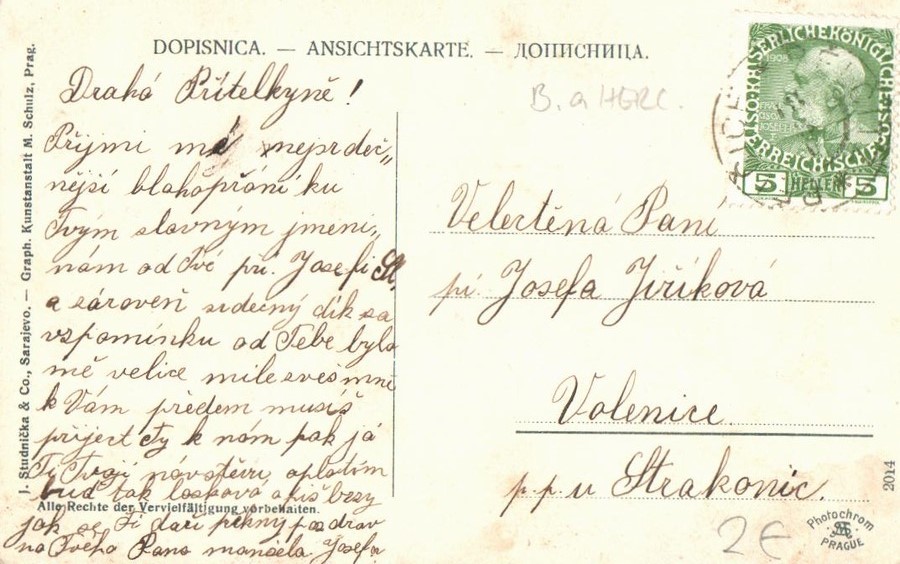 DOPISNICA. — ANSICHTSKARTE. — ДОПИСНИЦА.
J. Studnička & Co., Sarajevo. — Graph. Kunstanstalt M. Schulz, Prag.
Drahá Přítelkyně!
Přijmi mé nejsrdeč„
nější blahopřání ku
Tvým slavným jmeni„
nám od Tvé při. Josefi
a zároveň srdečný dík za
vzpomínku od Tebe bylo
mě velice milé
k Vám předem musíš
přiject Ty k nám pak já
Ti Tvojí návštěvu oplatím
buď tak
Alle Rechte der Vervielfältigung vorbehalten.
jak se Ti daří pěkný pozdrav
na Tvého Pana manžela Josefa
B. a HERC.
1908
KAISERLICHEKÖNIGLICHE
ÖSTERREICHISCHE POST
5 HELLER 5
Velectěná Paní
pí. Josefa Jiříková
Volenice.
p.p. u Strakonic.
2014
2€
Photochrom
PRAGUE